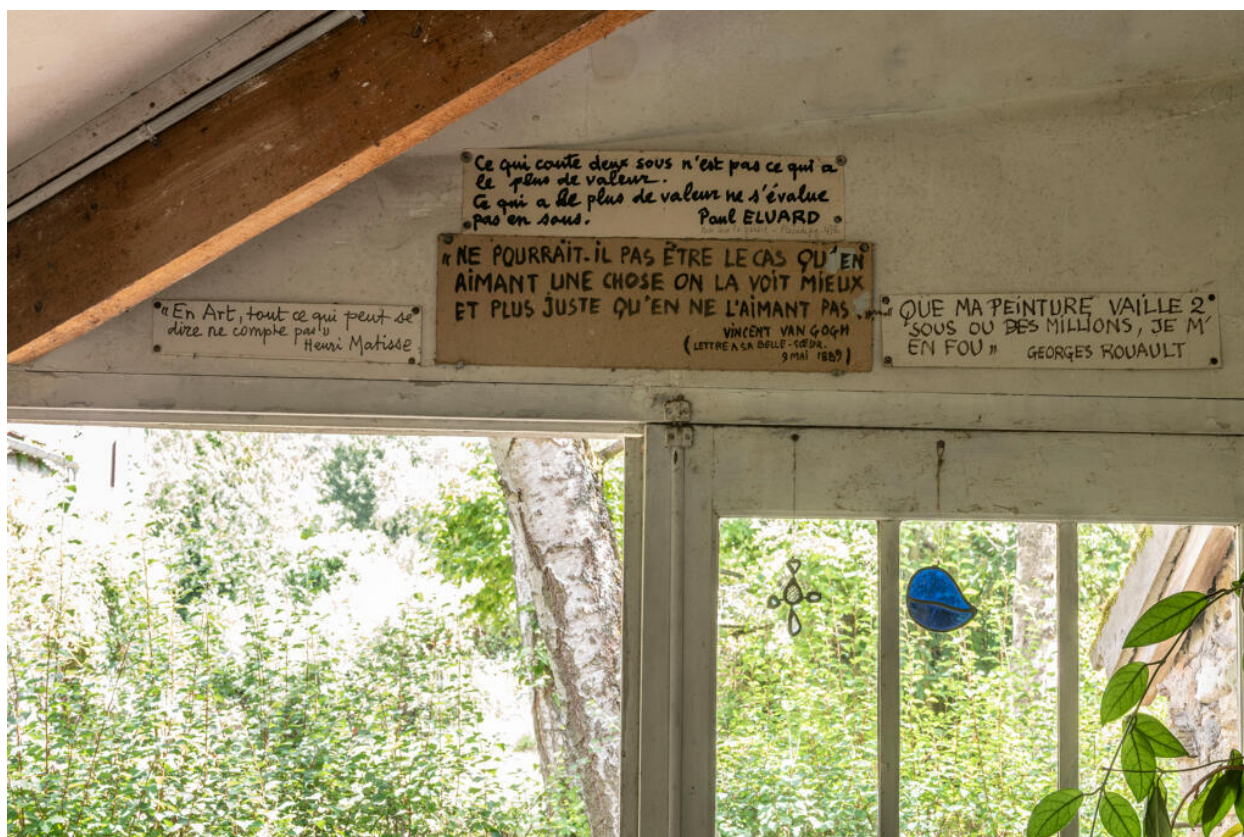 Ce qui coute deux sous n'est pas ce qui a
le plus de valeur.
Ce qui a le plus de valeur ne s'évalue
pas en sous.
Paul ELUARD
« NE POURRAIT-IL PAS ÊTRE LE CAS QU'EN
AIMANT UNE CHOSE ON LA VOIT MIEUX
ET PLUS JUSTE QU'EN NE L'AIMANT PAS
VINCENT VAN GOGH
(LETTRE A SA BELLE-SŒUR.
9 MAI 1889)
« En Art, tout ce qui peut se
dire ne compte pas »
Henri Matisse
« QUE MA PEINTURE VAILLE 2
SOUS OU DES MILLIONS, JE M'
EN FOU »
GEORGES ROUAULT